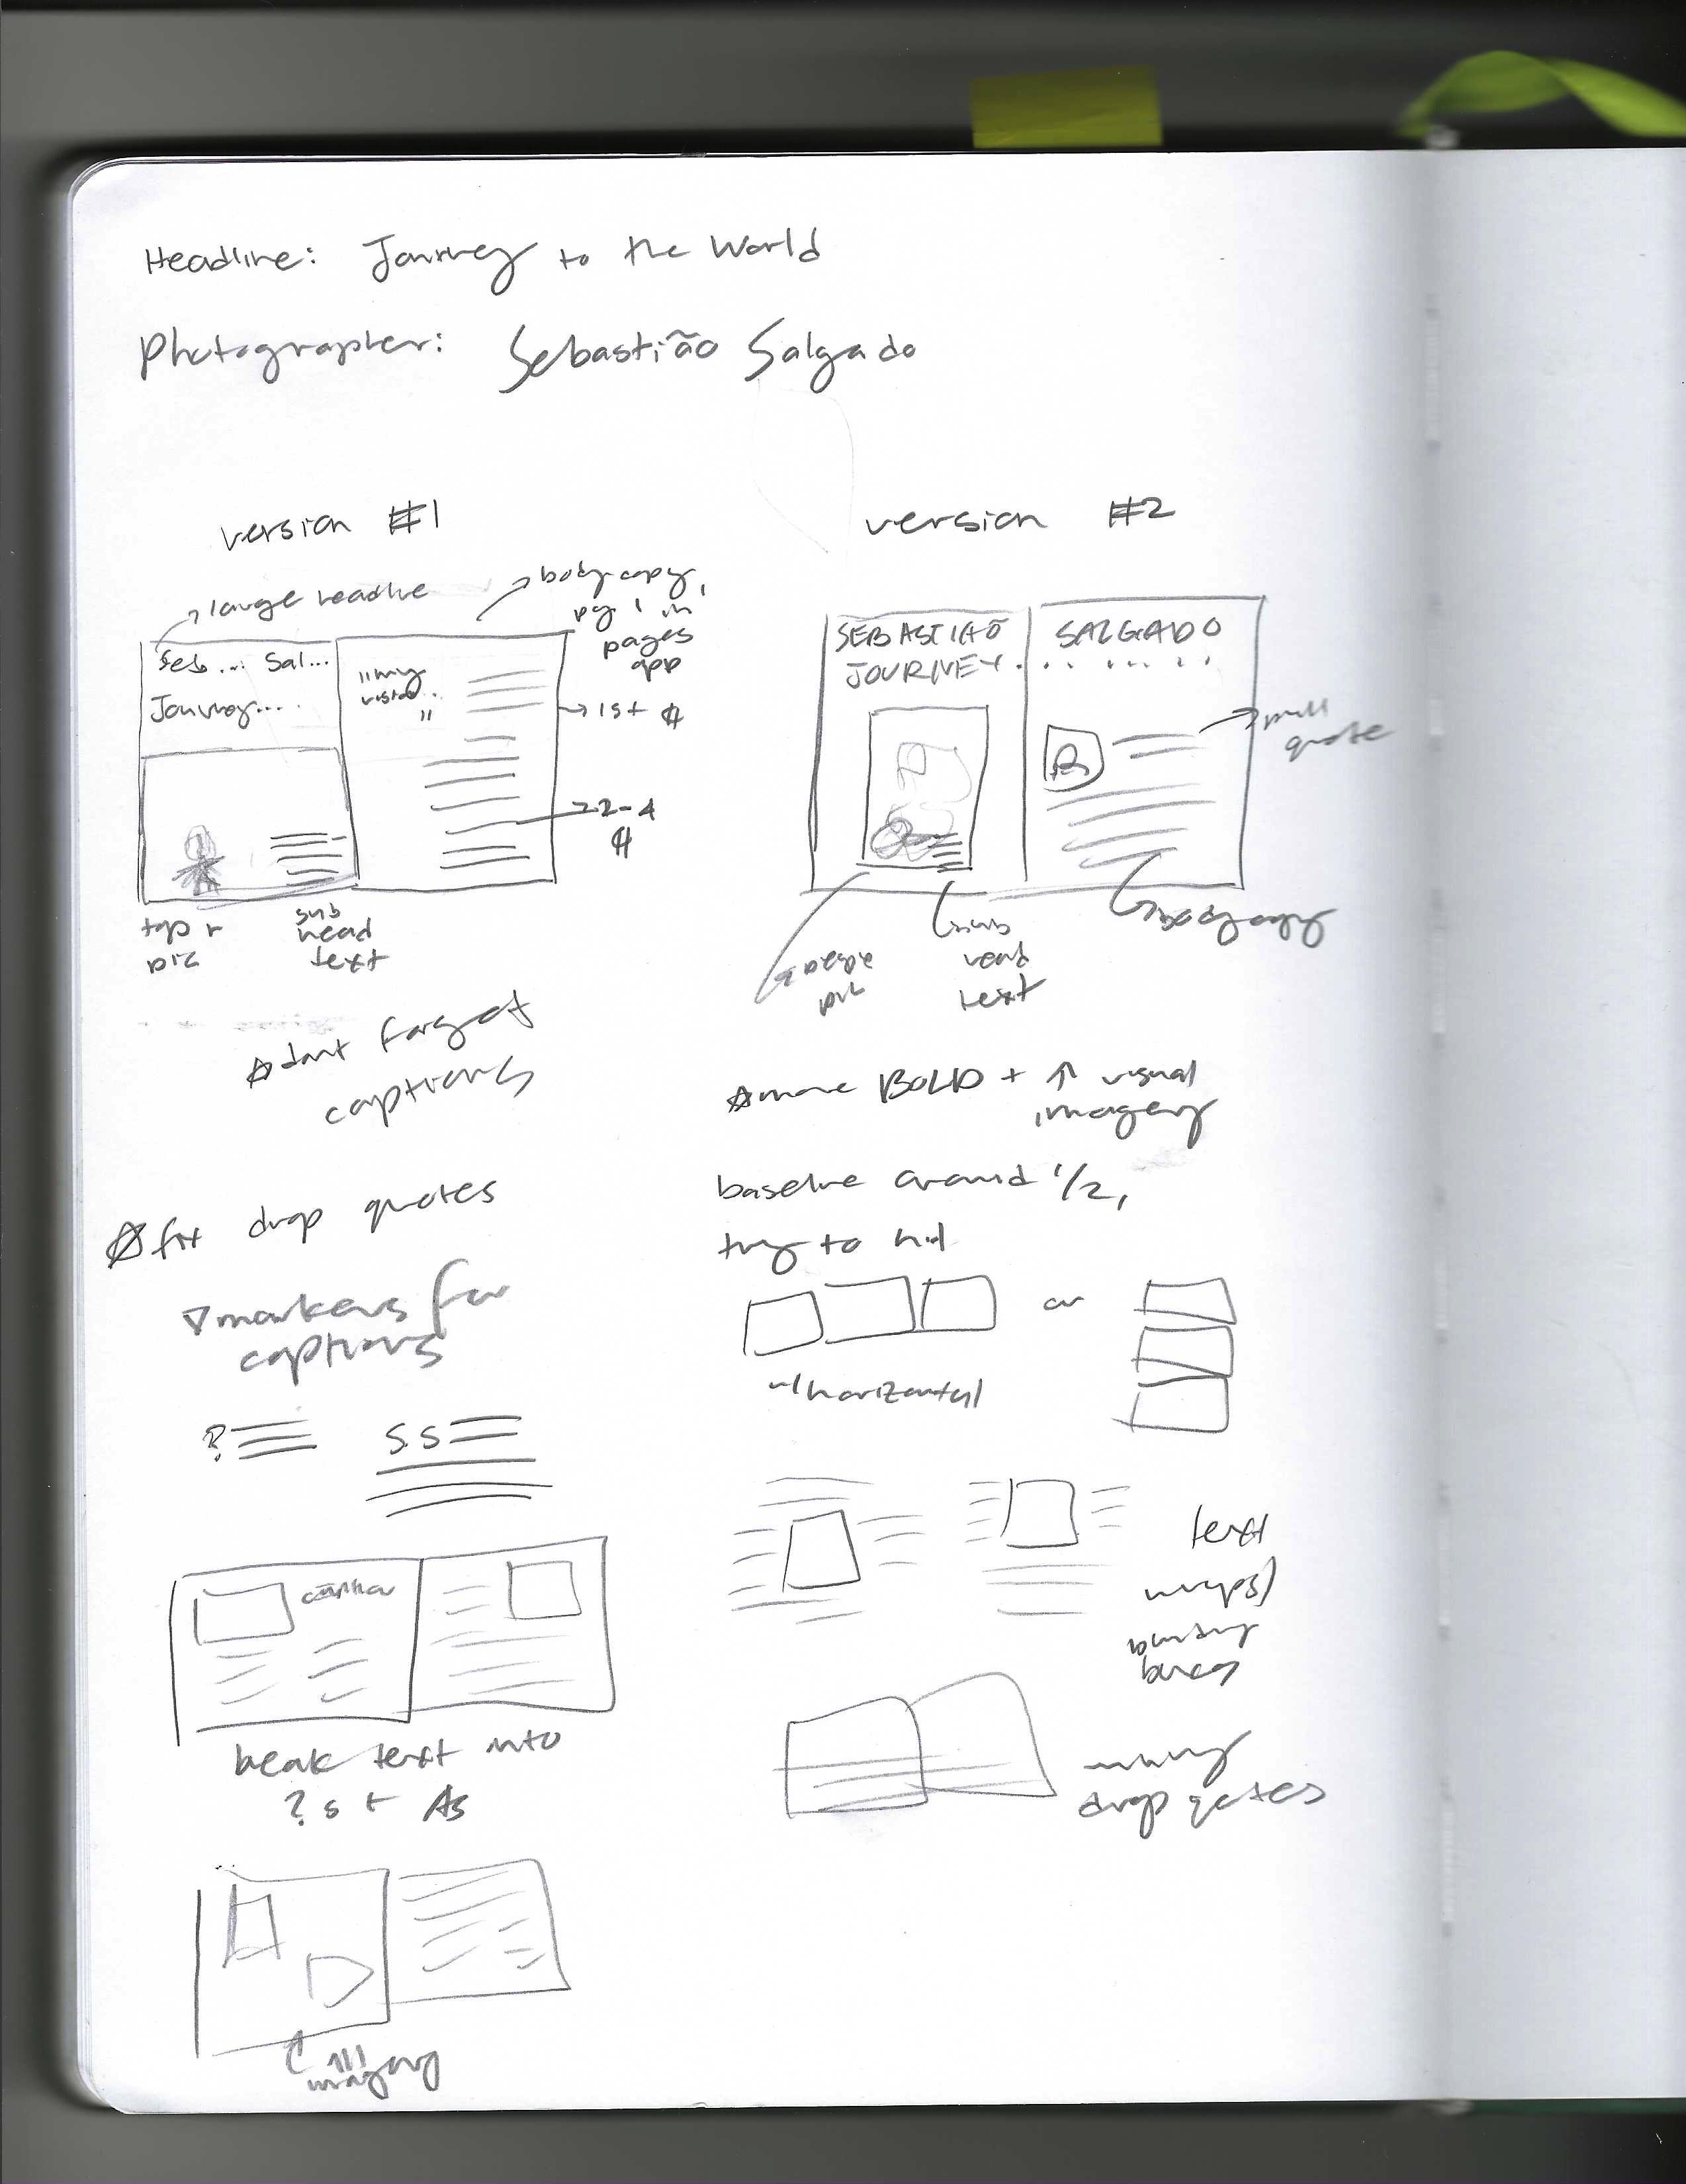 Headline: Journey to the World
Photographer: Sebastião Salgado
version #1
large headline
body copy,
pg 1 in
pages
app
Seb... Sal...
Journey...
"my
"
1st ¶
2-4
¶
top r
pic
sub
head
text
don't forget
captions
for drop quotes
markers for
captions
? S.S
caption
break text into
?s + As
imagery
version #2
SEBASTIÃO SALGADO
JOURNEY.......
pull
quote
body copy
sub
head
text
more BOLD + ↑ visual
imagery
baseline around 1/2,
try to
or
w/ horizontal
text
wraps/
many
drop quotes